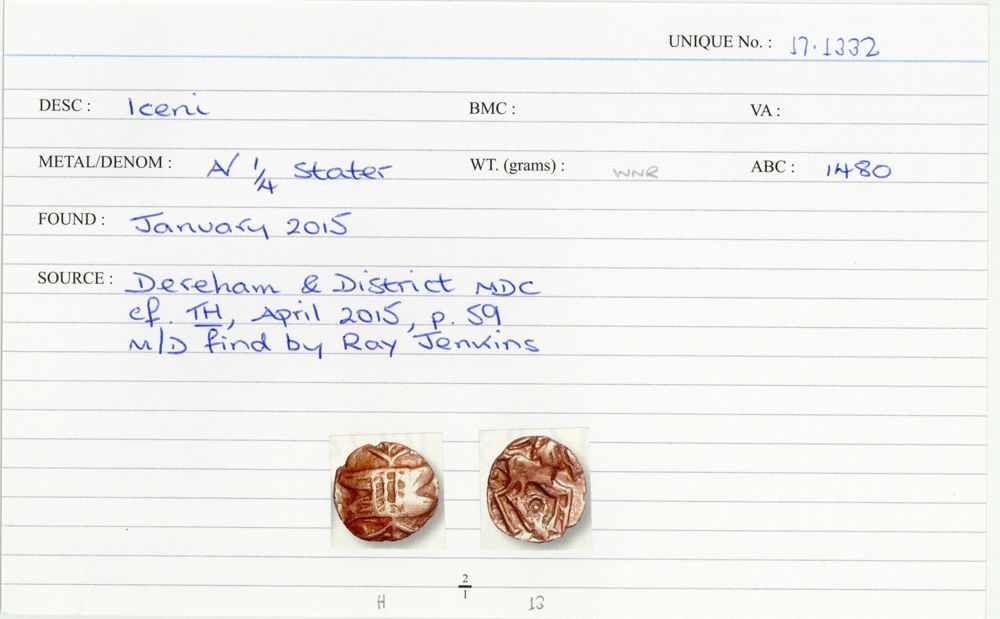 UNIQUE No. : 17.1332
DESC : Iceni BMC : VA :
METAL/DENOM : A/ 1/4 stater WT. (grams) : WNR ABC : 1480
FOUND : January 2015
SOURCE : Dereham & District MDC
cf. TH, April 2015, p. 59
M/D find by Ray Jenkins
2/1
H 13